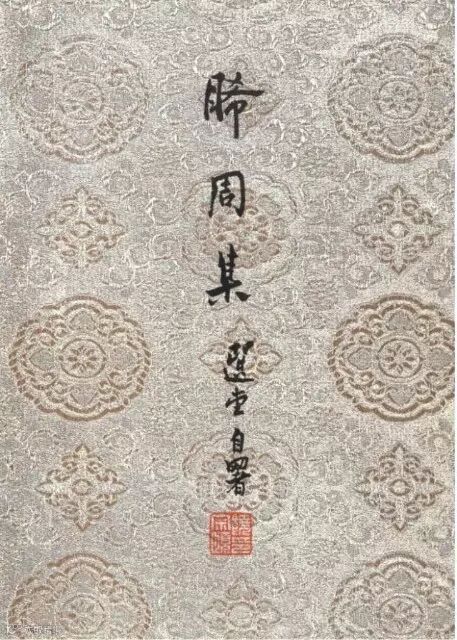 睎周集
選堂自署